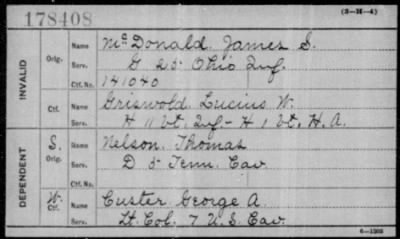 178408
(3-H-4)
INVALID
Orig.
Name McDonald. James S.
Serv. G 25 Ohio Inf.
Ctf. No. 141040
Ctf.
Name Griswold. Lucius W.
Serv. H 11 Vt. Inf - H 1 Vt. H. A.
DEPENDENT
S.
Orig.
Name Nelson. Thomas
Serv. D 5 Tenn. Cav
Ctf. No.
W.
Ctf.
Name Custer George A.
Serv. Lt. Col. 7 U. S. Cav.
6-1203